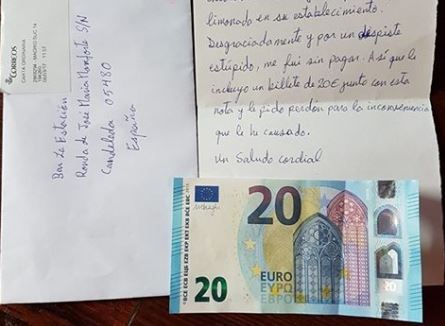 CORREOS
CARTA ORDINARIA
Bar La Estación
Ronda de José María Monforte S/N
Candeleda 05480
España
limonada en su establecimiento.
Desgraciadamente y por un despiste
estúpido, me fui sin pagar. Así que le
incluyo un billete de 20€ junto con esta
nota y le pido perdón para la inconveniencia
que le he causado.
Un Saludo cordial
20
20
EURO
ΕΥΡΩ
ЕВРО
20
BCE ECB ЕЦБ EZB EKP EKT EKB BCE EBC